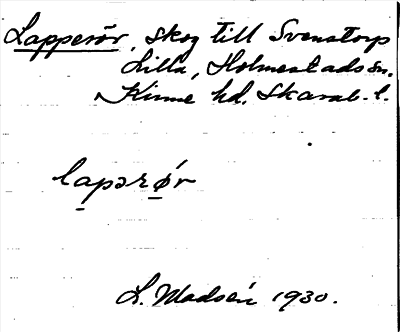 Lapperör, skog till Svenstorp
Lilla, Holmestads sn.
Kinne hd. Skarab. l.
lapərǿ̱r
L. Madsén 1930.